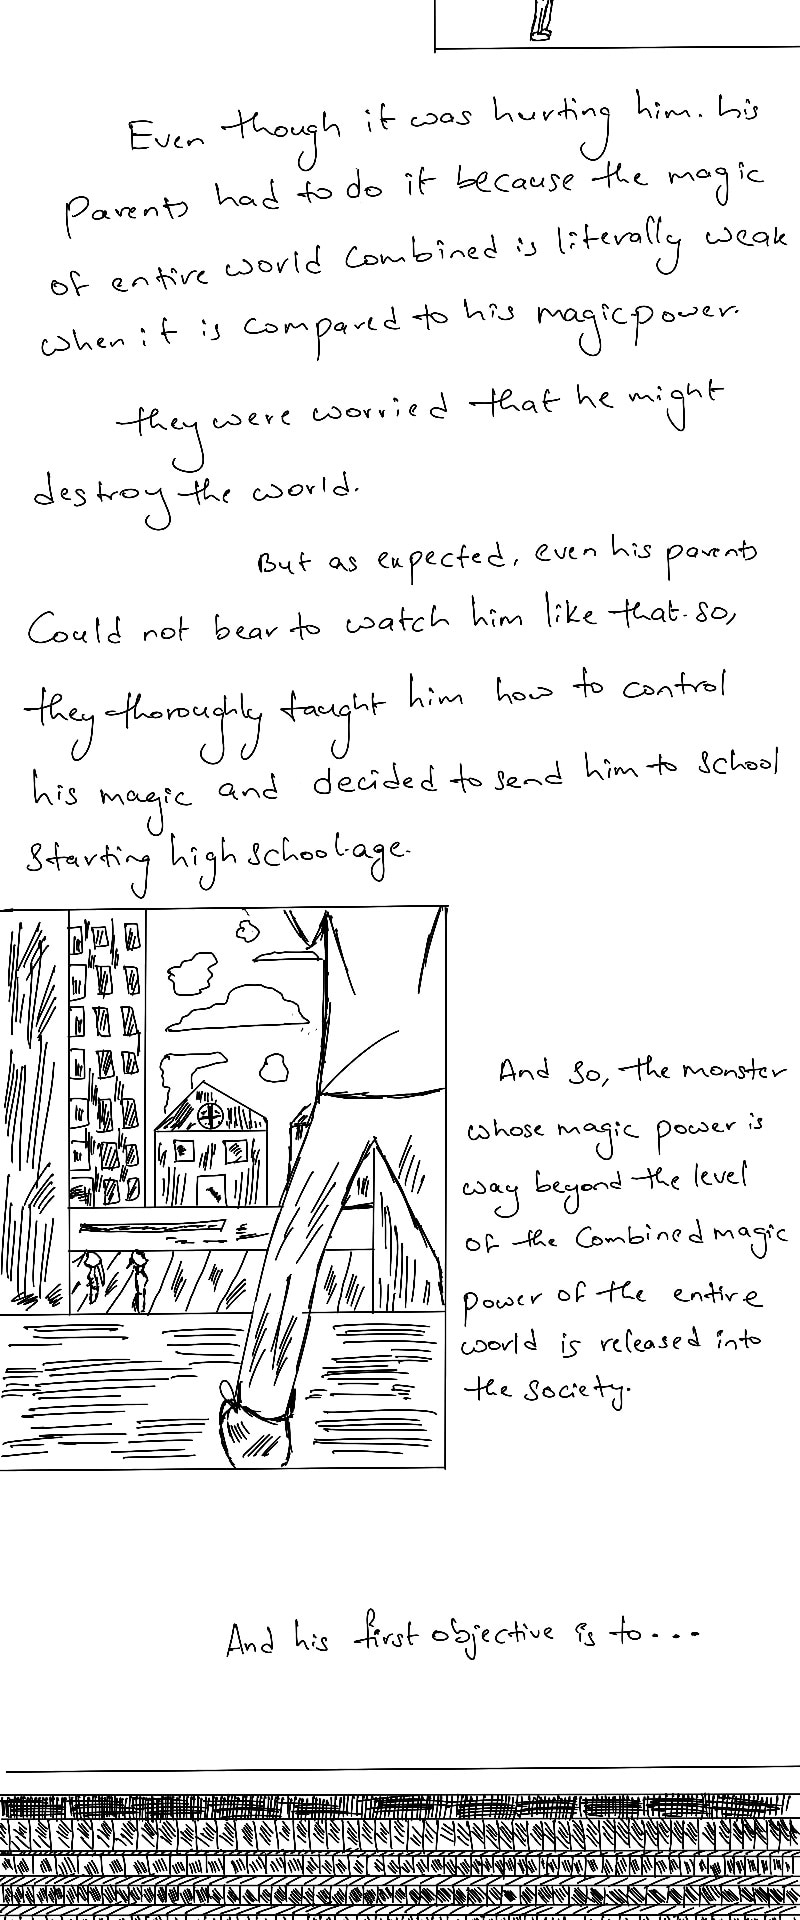 Even though it was hurting him. his
Parents had to do it because the magic
of entire world combined is literally weak
when it is compared to his magic power.
they were worried that he might
destroy the world.
But as expected, even his parents
Could not bear to watch him like that. so,
they thoroughly taught him how to control
his magic and decided to send him to school
starting high school age.
And so, the monster
whose magic power is
way beyond the level
of the combined magic
power of the entire
world is released into
the society.
And his first objective is to...